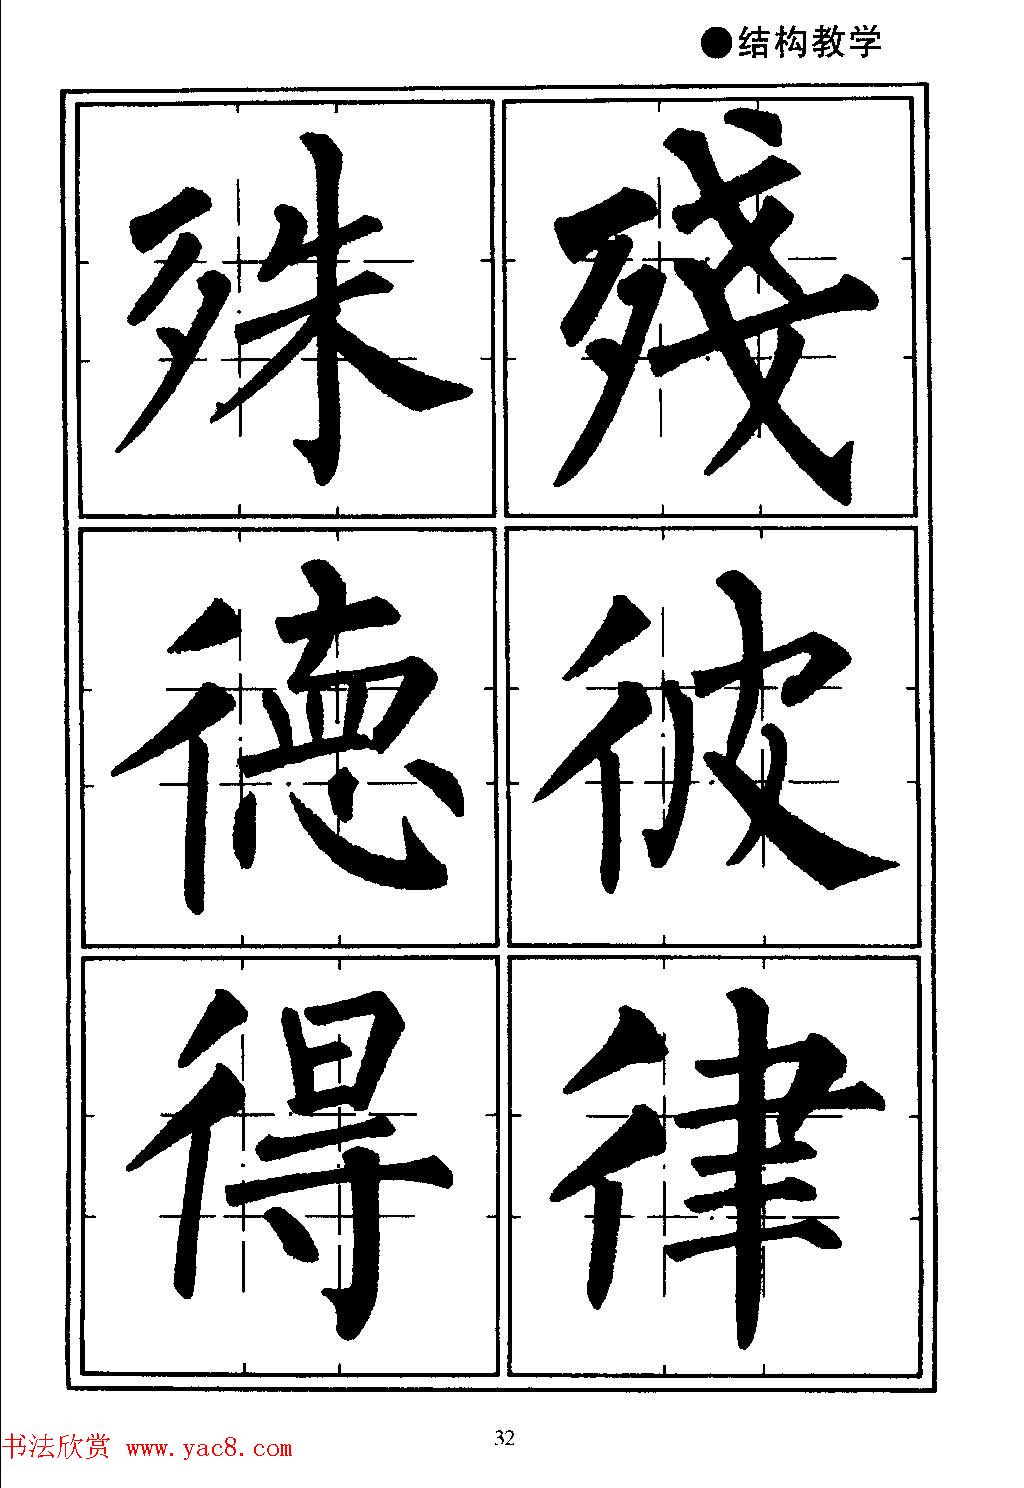 ●结构教学
殊殘
德彼
得律
32
书法欣赏 www.yac8.com